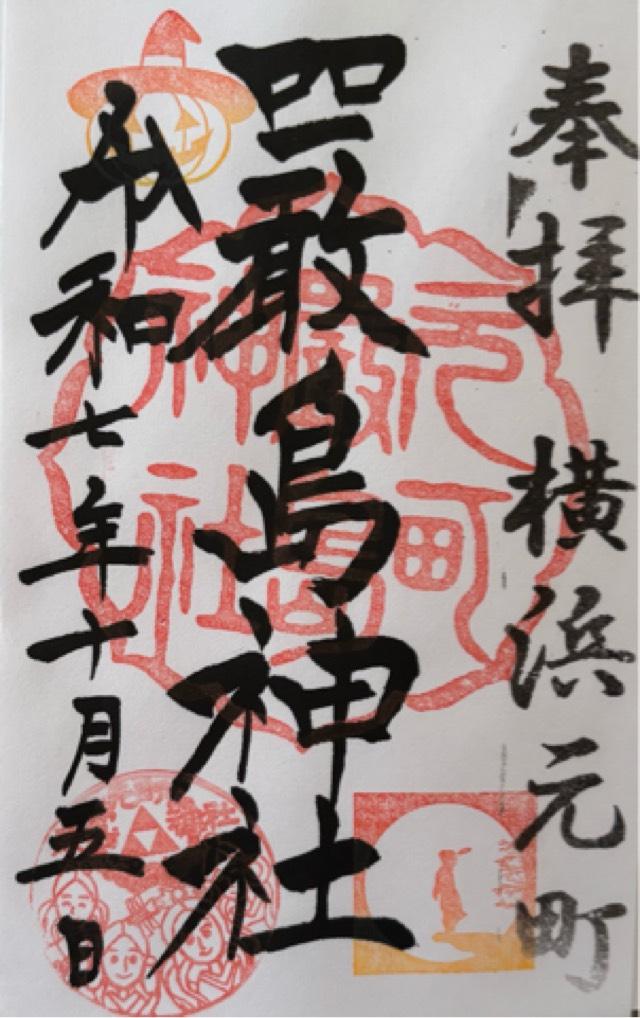 奉拝 横浜元町
嚴島神社
令和七年十月五日
元町
嚴島
神社